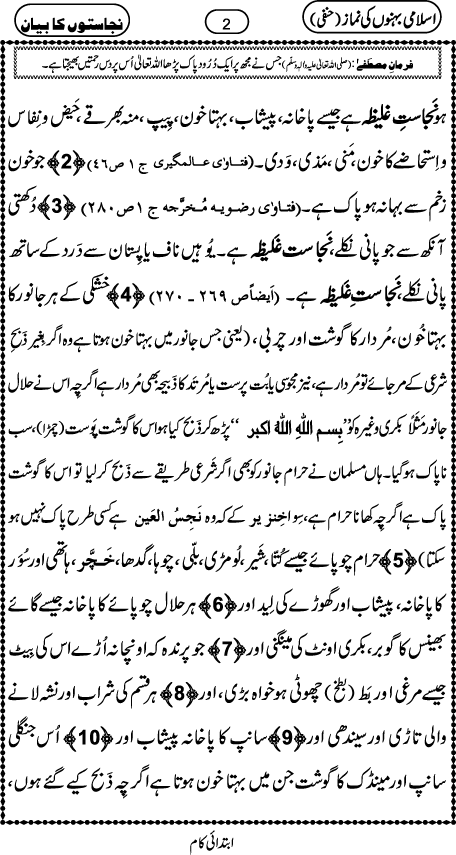 اسلامی بہنوں کی نماز (حنفی)
2
نجاستوں کا بیان
فرمانِ مصطفےٰ: (صلی اللہ تعالیٰ علیہ والہ وسلم) جس نے مجھ پر ایک دُرُود پاک پڑھا اللہ تعالیٰ اُس پر دس رحمتیں بھیجتا ہے۔
ہو نَجاستِ غلیظہ ہے جیسے پاخانہ، پیشاب، بہتا خون، پیپ، منہ بھر قے، حَیض و نِفاس
و اِستحاضے کا خون، مَنی، مَذی، وَدی۔ (فتاوٰی عالمگیری ج ۱ ص ۴۶) ﴿2﴾ جو خون
زخم سے بہا نہ ہو پاک ہے۔ (فتاوٰی رضویہ مُخرَّجہ ج ۱ ص ۲۸۰) ﴿3﴾ دُکھتی
آنکھ سے جو پانی نکلے، نَجاستِ غلیظہ ہے۔ یُوہیں ناف یا پِستان سے دَرد کے ساتھ
پانی نکلے، نَجاستِ غلیظہ ہے۔ (اَیضاً ص ۲۶۹ ۔ ۲۷۰) ﴿4﴾ خشکی کے ہر جانور کا
بہتا خُون، مُردار کا گوشت اور چربی، (یعنی جس جانور میں بہتا خون ہوتا ہے وہ اگر بِغیر ذَبحِ
شَرعی کے مر جائے تو مُردار ہے، نیز مجوسی یا بُت پرست یا مُرتد کا ذبیحہ بھی مُردار ہے اگرچہ اس نے حلال
جانور مَثَلاً بکری وغیرہ کو ”بِسمِ اللهِ اللهُ اکبر“ پڑھ کر ذَبح کیا ہو اس کا گوشت پوست (چمڑا)، سب
ناپاک ہو گیا۔ ہاں مسلمان نے حرام جانور کو بھی اگر شَرعی طریقے سے ذَبح کر لیا تو اس کا گوشت
پاک ہے اگرچہ کھانا حرام ہے، سِوا خِنزیر کے کہ وہ نَجِسُ العَین ہے کسی طرح پاک نہیں ہو
سکتا) ﴿5﴾ حرام چوپائے جیسے کُتّا، شَیر، لُومڑی، بلّی، چوہا، گدھا، خَچَّر، ہاتھی اور سُوَر
کا پاخانہ، پیشاب اور گھوڑے کی لِید اور ﴿6﴾ ہر حلال چوپائے کا پاخانہ جیسے گائے
بھینس کا گوبر، بکری اونٹ کی مینگنی اور ﴿7﴾ جو پرندہ کہ اونچا نہ اُڑے اس کی بِیٹ
جیسے مرغی اور بَط (بطخ) چھوٹی ہو خواہ بڑی، اور ﴿8﴾ ہر قسم کی شراب اور نشہ لانے
والی تاڑی اور سیندھی اور ﴿9﴾ سانپ کا پاخانہ پیشاب اور ﴿10﴾ اُس جنگلی
سانپ اور مینڈک کا گوشت جن میں بہتا خون ہوتا ہے اگرچہ ذَبح کیے گئے ہوں،
ابتدائی کام